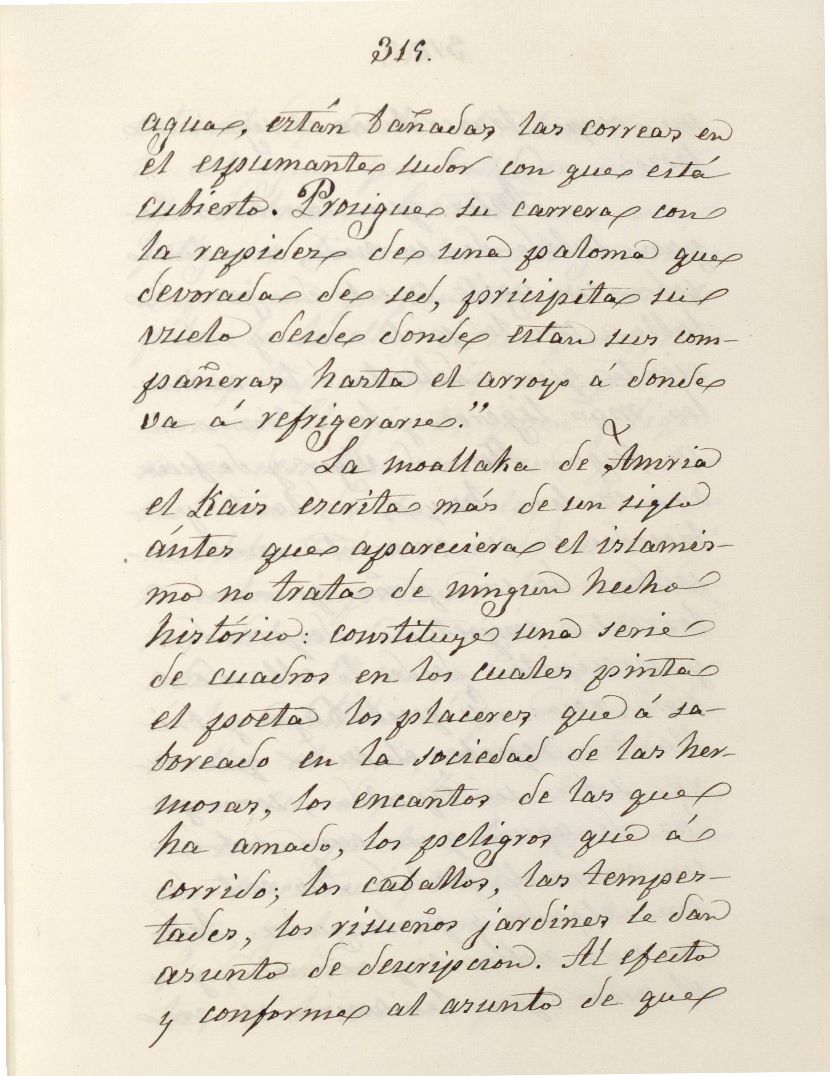 315.
agua, están bañadas las correas en
el espumante sudor con que está
cubierto. Prosigue su carrera con
la rapidez de una paloma que
devorada de sed, pricipita su
vuelo desde donde estan sus com-
pañeras hasta el arroyo á donde
va á refrigerarse."
La moallaka de Amria
el Kais escrita más de un siglo
ántes que apareciera el islamis-
mo no trata de ningun hecho
histórico: constituye una serie
de cuadros en los cuales pinta
el poeta los placeres que á sa-
boreado en la sociedad de las her-
mosas, los encantos de las que
ha amado, los peligros que á
corrido; los caballos, las tempes-
tades, los risueños jardines le dan
asunto de descripcion. Al efecto
y conforme al asunto de que